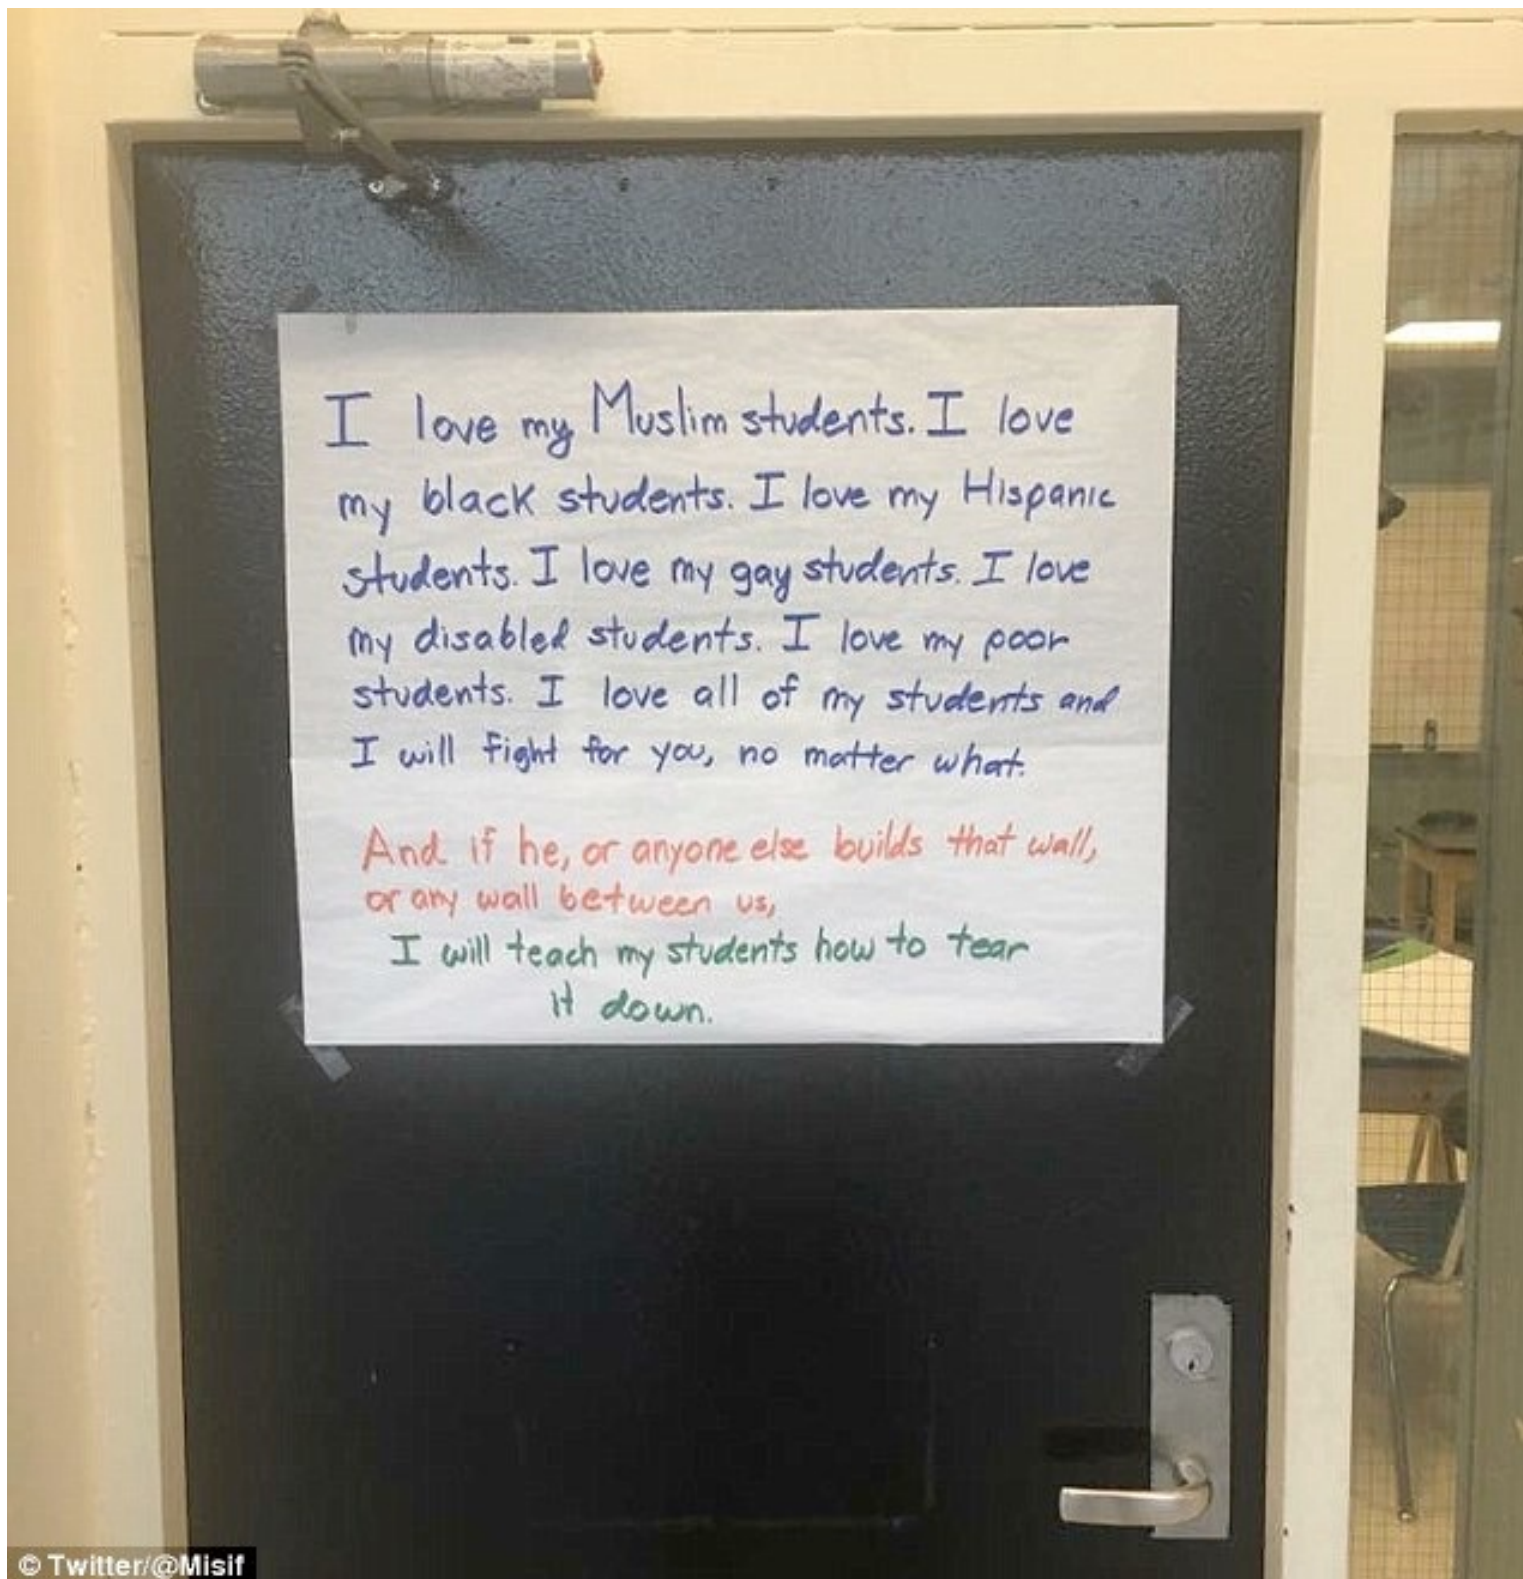 I love my Muslim students. I love
my black students. I love my Hispanic
students. I love my gay students. I love
my disabled students. I love my poor
students. I love all of my students and
I will fight for you, no matter what.
And if he, or anyone else builds that wall,
or any wall between us,
I will teach my students how to tear
it down.
© Twitter/@Misif